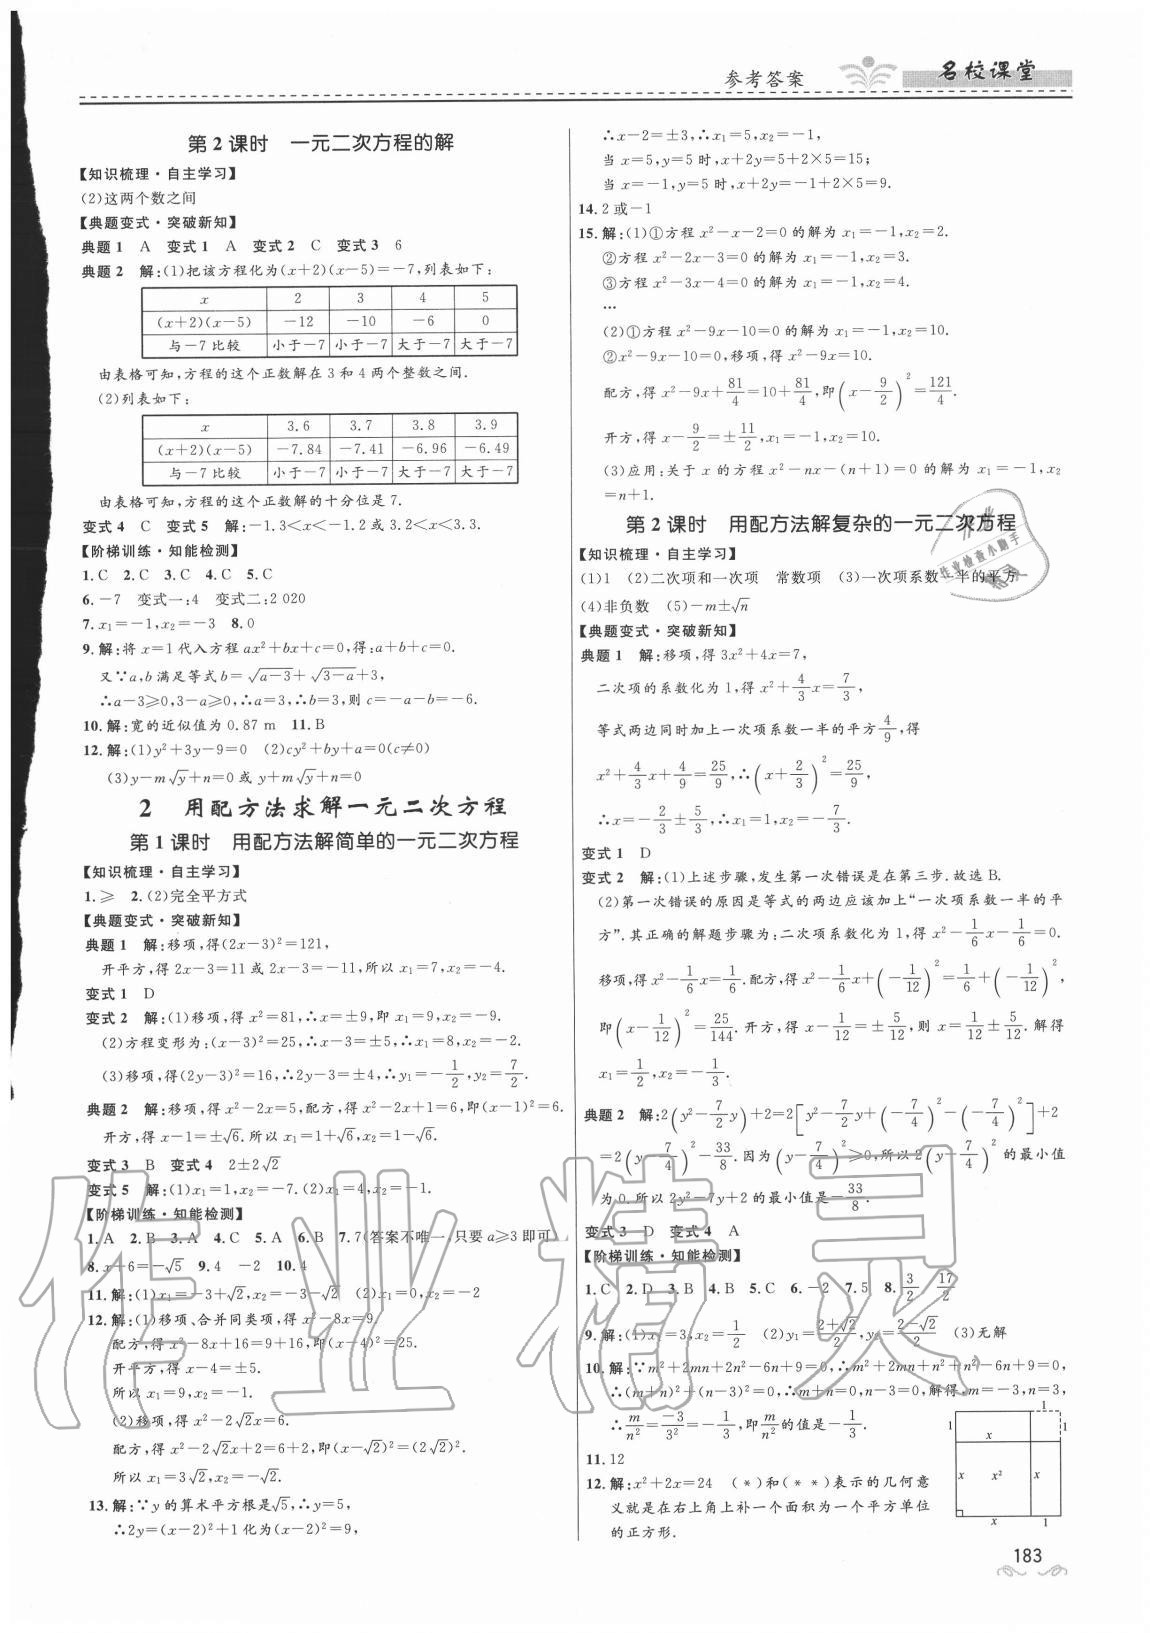 参考答案
名校课堂
第 2 课时　一元二次方程的解
【知识梳理·自主学习】
(2)这两个数之间
【典题变式·突破新知】
典题 1　A　变式 1　A　变式 2　C　变式 3　6
典题 2　解:(1)把该方程化为(x+2)(x-5)=-7,列表如下:
x　2　3　4　5
(x+2)(x-5)　-12　-10　-6　0
与-7 比较　小于-7　小于-7　大于-7　大于-7
由表格可知,方程的这个正数解在 3 和 4 两个整数之间.
(2)列表如下:
x　3.6　3.7　3.8　3.9
(x+2)(x-5)　-7.84　-7.41　-6.96　-6.49
与-7 比较　小于-7　小于-7　大于-7　大于-7
由表格可知,方程的这个正数解的十分位是 7.
变式 4　C　变式 5　解:-1.3<x<-1.2 或 3.2<x<3.3.
【阶梯训练·知能检测】
1.C　2.C　3.C　4.C　5.C
6.-7　变式一:4　变式二:2 020
7.x₁=-1,x₂=-3　8.0
9.解:将 x=1 代入方程 ax²+bx+c=0,得:a+b+c=0.
又∵a,b 满足等式 b=√(a-3)+√(3-a)+3,
∴a-3≥0,3-a≥0,∴a=3,∴b=3,则 c=-a-b=-6.
10.解:宽的近似值为 0.87 m　11.B
12.解:(1)y²+3y-9=0　(2)cy²+by+a=0(c≠0)
(3)y-m√y+n=0 或 y+m√y+n=0
2　用配方法求解一元二次方程
第 1 课时　用配方法解简单的一元二次方程
【知识梳理·自主学习】
1.≥　2.(2)完全平方式
【典题变式·突破新知】
典题 1　解:移项,得(2x-3)²=121,
开平方,得 2x-3=11 或 2x-3=-11,所以 x₁=7,x₂=-4.
变式 1　D
变式 2　解:(1)移项,得 x²=81,∴x=±9,即 x₁=9,x₂=-9.
(2)方程变形为:(x-3)²=25,∴x-3=±5,∴x₁=8,x₂=-2.
(3)移项,得(2y-3)²=16,∴2y-3=±4,∴y₁=-1/2,y₂=7/2.
典题 2　解:移项,得 x²-2x=5,配方,得 x²-2x+1=6,即(x-1)²=6.
开方,得 x-1=±√6.所以 x₁=1+√6,x₂=1-√6.
变式 3　B　变式 4　2±2√2
变式 5　解:(1)x₁=1,x₂=-7.(2)x₁=4,x₂=-1.
【阶梯训练·知能检测】
1.A　2.B　3.A　4.C　5.A　6.B　7.7(答案不唯一,只要 a≥3 即可)
8.x+6=-√5　9.4　-2　10.4
11.解:(1)x₁=-3+√2,x₂=-3-√2　(2)x₁=0,x₂=-2
12.解:(1)移项、合并同类项,得 x²-8x=9.
配方,得 x²-8x+16=9+16,即(x-4)²=25.
开平方,得 x-4=±5.
所以 x₁=9,x₂=-1.
(2)移项,得 x²-2√2x=6.
配方,得 x²-2√2x+2=6+2,即(x-√2)²=(2√2)².
所以 x₁=3√2,x₂=-√2.
13.解:∵y 的算术平方根是√5,∴y=5,
∴2y=(x-2)²+1 化为(x-2)²=9,
∴x-2=±3,∴x₁=5,x₂=-1,
当 x=5,y=5 时,x+2y=5+2×5=15;
当 x=-1,y=5 时,x+2y=-1+2×5=9.
14.2 或-1
15.解:(1)①方程 x²-x-2=0 的解为 x₁=-1,x₂=2.
②方程 x²-2x-3=0 的解为 x₁=-1,x₂=3.
③方程 x²-3x-4=0 的解为 x₁=-1,x₂=4.
…
(2)①方程 x²-9x-10=0 的解为 x₁=-1,x₂=10.
②x²-9x-10=0,移项,得 x²-9x=10.
配方,得 x²-9x+81/4=10+81/4,即(x-9/2)²=121/4.
开方,得 x-9/2=±11/2,x₁=-1,x₂=10.
(3)应用:关于 x 的方程 x²-nx-(n+1)=0 的解为 x₁=-1,x₂
=n+1.
第 2 课时　用配方法解复杂的一元二次方程
【知识梳理·自主学习】
(1)1　(2)二次项和一次项　常数项　(3)一次项系数一半的平方
(4)非负数　(5)-m±√n
【典题变式·突破新知】
典题 1　解:移项,得 3x²+4x=7,
二次项的系数化为 1,得 x²+4/3x=7/3,
等式两边同时加上一次项系数一半的平方4/9,得
x²+4/3x+4/9=25/9,∴(x+2/3)²=25/9,
∴x=-2/3±5/3,∴x₁=1,x₂=-7/3.
变式 1　D
变式 2　解:(1)上述步骤,发生第一次错误是在第三步.故选 B.
(2)第一次错误的原因是等式的两边应该加上“一次项系数一半的平
方”.其正确的解题步骤为:二次项系数化为 1,得 x²-1/6x-1/6=0.
移项,得 x²-1/6x=1/6.配方,得 x²-1/6x+(-1/12)²=1/6+(-1/12)²,
即(x-1/12)²=25/144.开方,得 x-1/12=±5/12,则 x=1/12±5/12.解得
x₁=1/2,x₂=-1/3.
典题 2　解:2(y²-7/2y)+2=2[y²-7/2y+(-7/4)²-(-7/4)²]+2
=2(y-7/4)²-33/8.因为(y-7/4)²≥0,所以 2(y-7/4)²的最小值
为 0.所以 2y²-7y+2 的最小值是-33/8.
变式 3　D　变式 4　A
【阶梯训练·知能检测】
1.C　2.D　3.B　4.B　5.C　6.-2　7.5　8.3/2　17/2
9.解:(1)x₁=3,x₂=1/2　(2)y₁=(2+√2)/2,y₂=(2-√2)/2　(3)无解
10.解:∵m²+2mn+2n²-6n+9=0,∴m²+2mn+n²+n²-6n+9=0,
∴(m+n)²+(n-3)²=0,∴m+n=0,n-3=0,解得,m=-3,n=3,
∴m/n²=-3/3²=-1/3,即m/n²的值是-1/3.
11.12
12.解:x²+2x=24　(*)和(**)表示的几何意
义就是在右上角上补一个面积为一个平方单位
的正方形.
1
1　x　1
x　x²　x
x　1
183
作业检查小助手
作业精灵